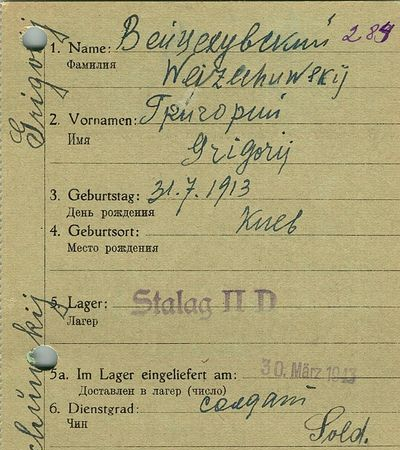 1. Name: Вейцеховский 284
Фамилия
Weizechuwskÿ
2. Vornamen: Григорий
Имя
Grigorÿ
3. Geburtstag: 31.7.1913
День рождения
4. Geburtsort: Киев
Место рождения
5. Lager: Stalag II D
Лагерь
5a. Im Lager eingeliefert am: 30. März 1943
Доставлен в лагерь (число)
6. Dienstgrad: солдат
Чин
Sold.
Grigorÿ